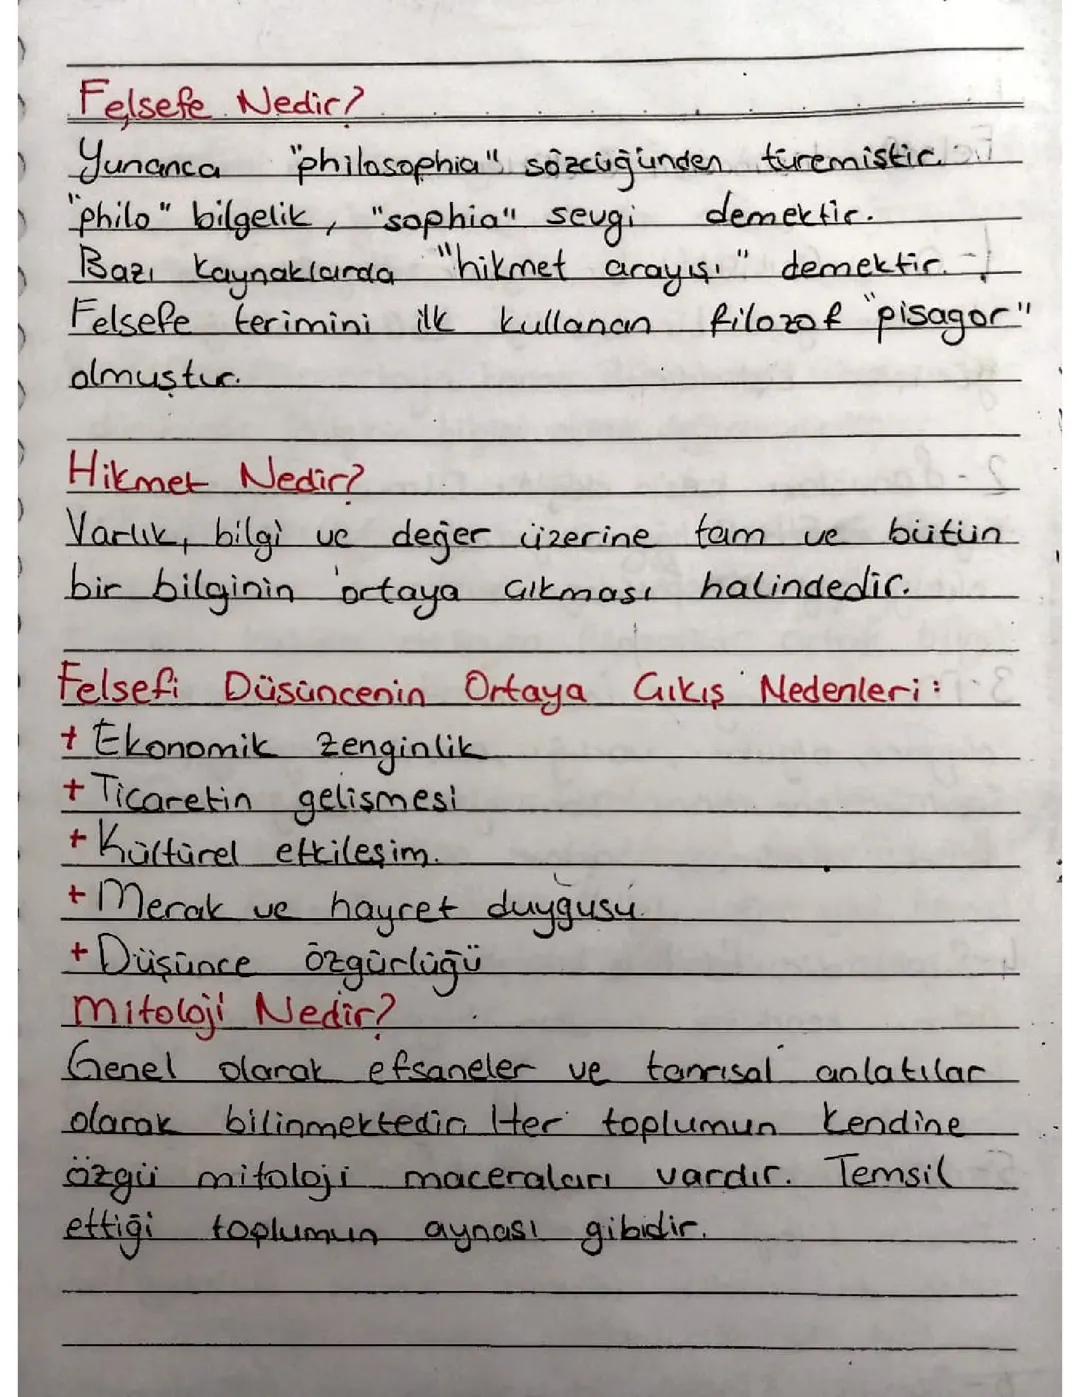 Felsefe Nedir?
Yunanca "philosophia" sözcüğünden türemistir.
"philo" bilgelik, "sophia" sevgi demektir.
Bazı kaynaklarda "hikmet arayışı" demektir.
Felsefe terimini ilk kullanan filozof "pisagor"
olmuştur.
Hikmet Nedir?
Varlık, bilgi ve değer üzerine tam ve bütün
bir bilginin ortaya çıkması halindedir.
Felsefi Düsüncenin Ortaya Çıkış Nedenleri:
+ Ekonomik zenginlik
+ Ticaretin gelişmesi
+ Kültürel etkileşim.
+ Merak ve hayret duygusu.
+ Düşünce özgürlüğü
Mitoloji Nedir?
Genel olarak efsaneler ve tanrısal anlatılar
olarak bilinmektedir. Her toplumun kendine
özgü mitoloji maceraları vardır. Temsil
ettiği toplumun aynası gibidir.